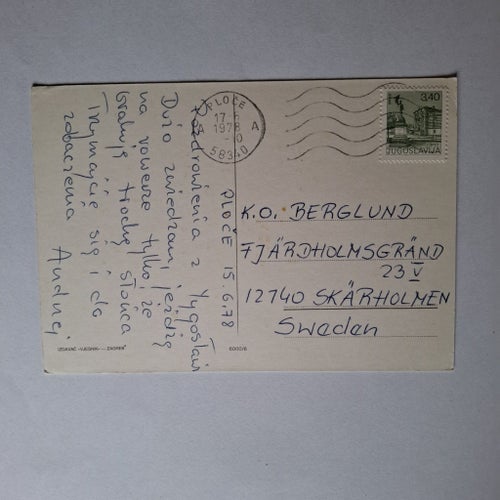 PLOČE 15.6.78
Pozdrowienia z Jugosławii
Dużo zwiedzam, jeżdżę
na rowerze tylko, że
brakuje trochę słońca
Trzymajcie się i do
zobaczenia
Andrzej
PLOČE
17-6
1978
58340
A
3,40
JUGOSLAVIJA
K.O. BERGLUND
FJÄRDHOLMSGRÄND
23 V
12740 SKÄRHOLMEN
Sweden
IZDANJE »VJESNIK« — ZAGREB
6000/6